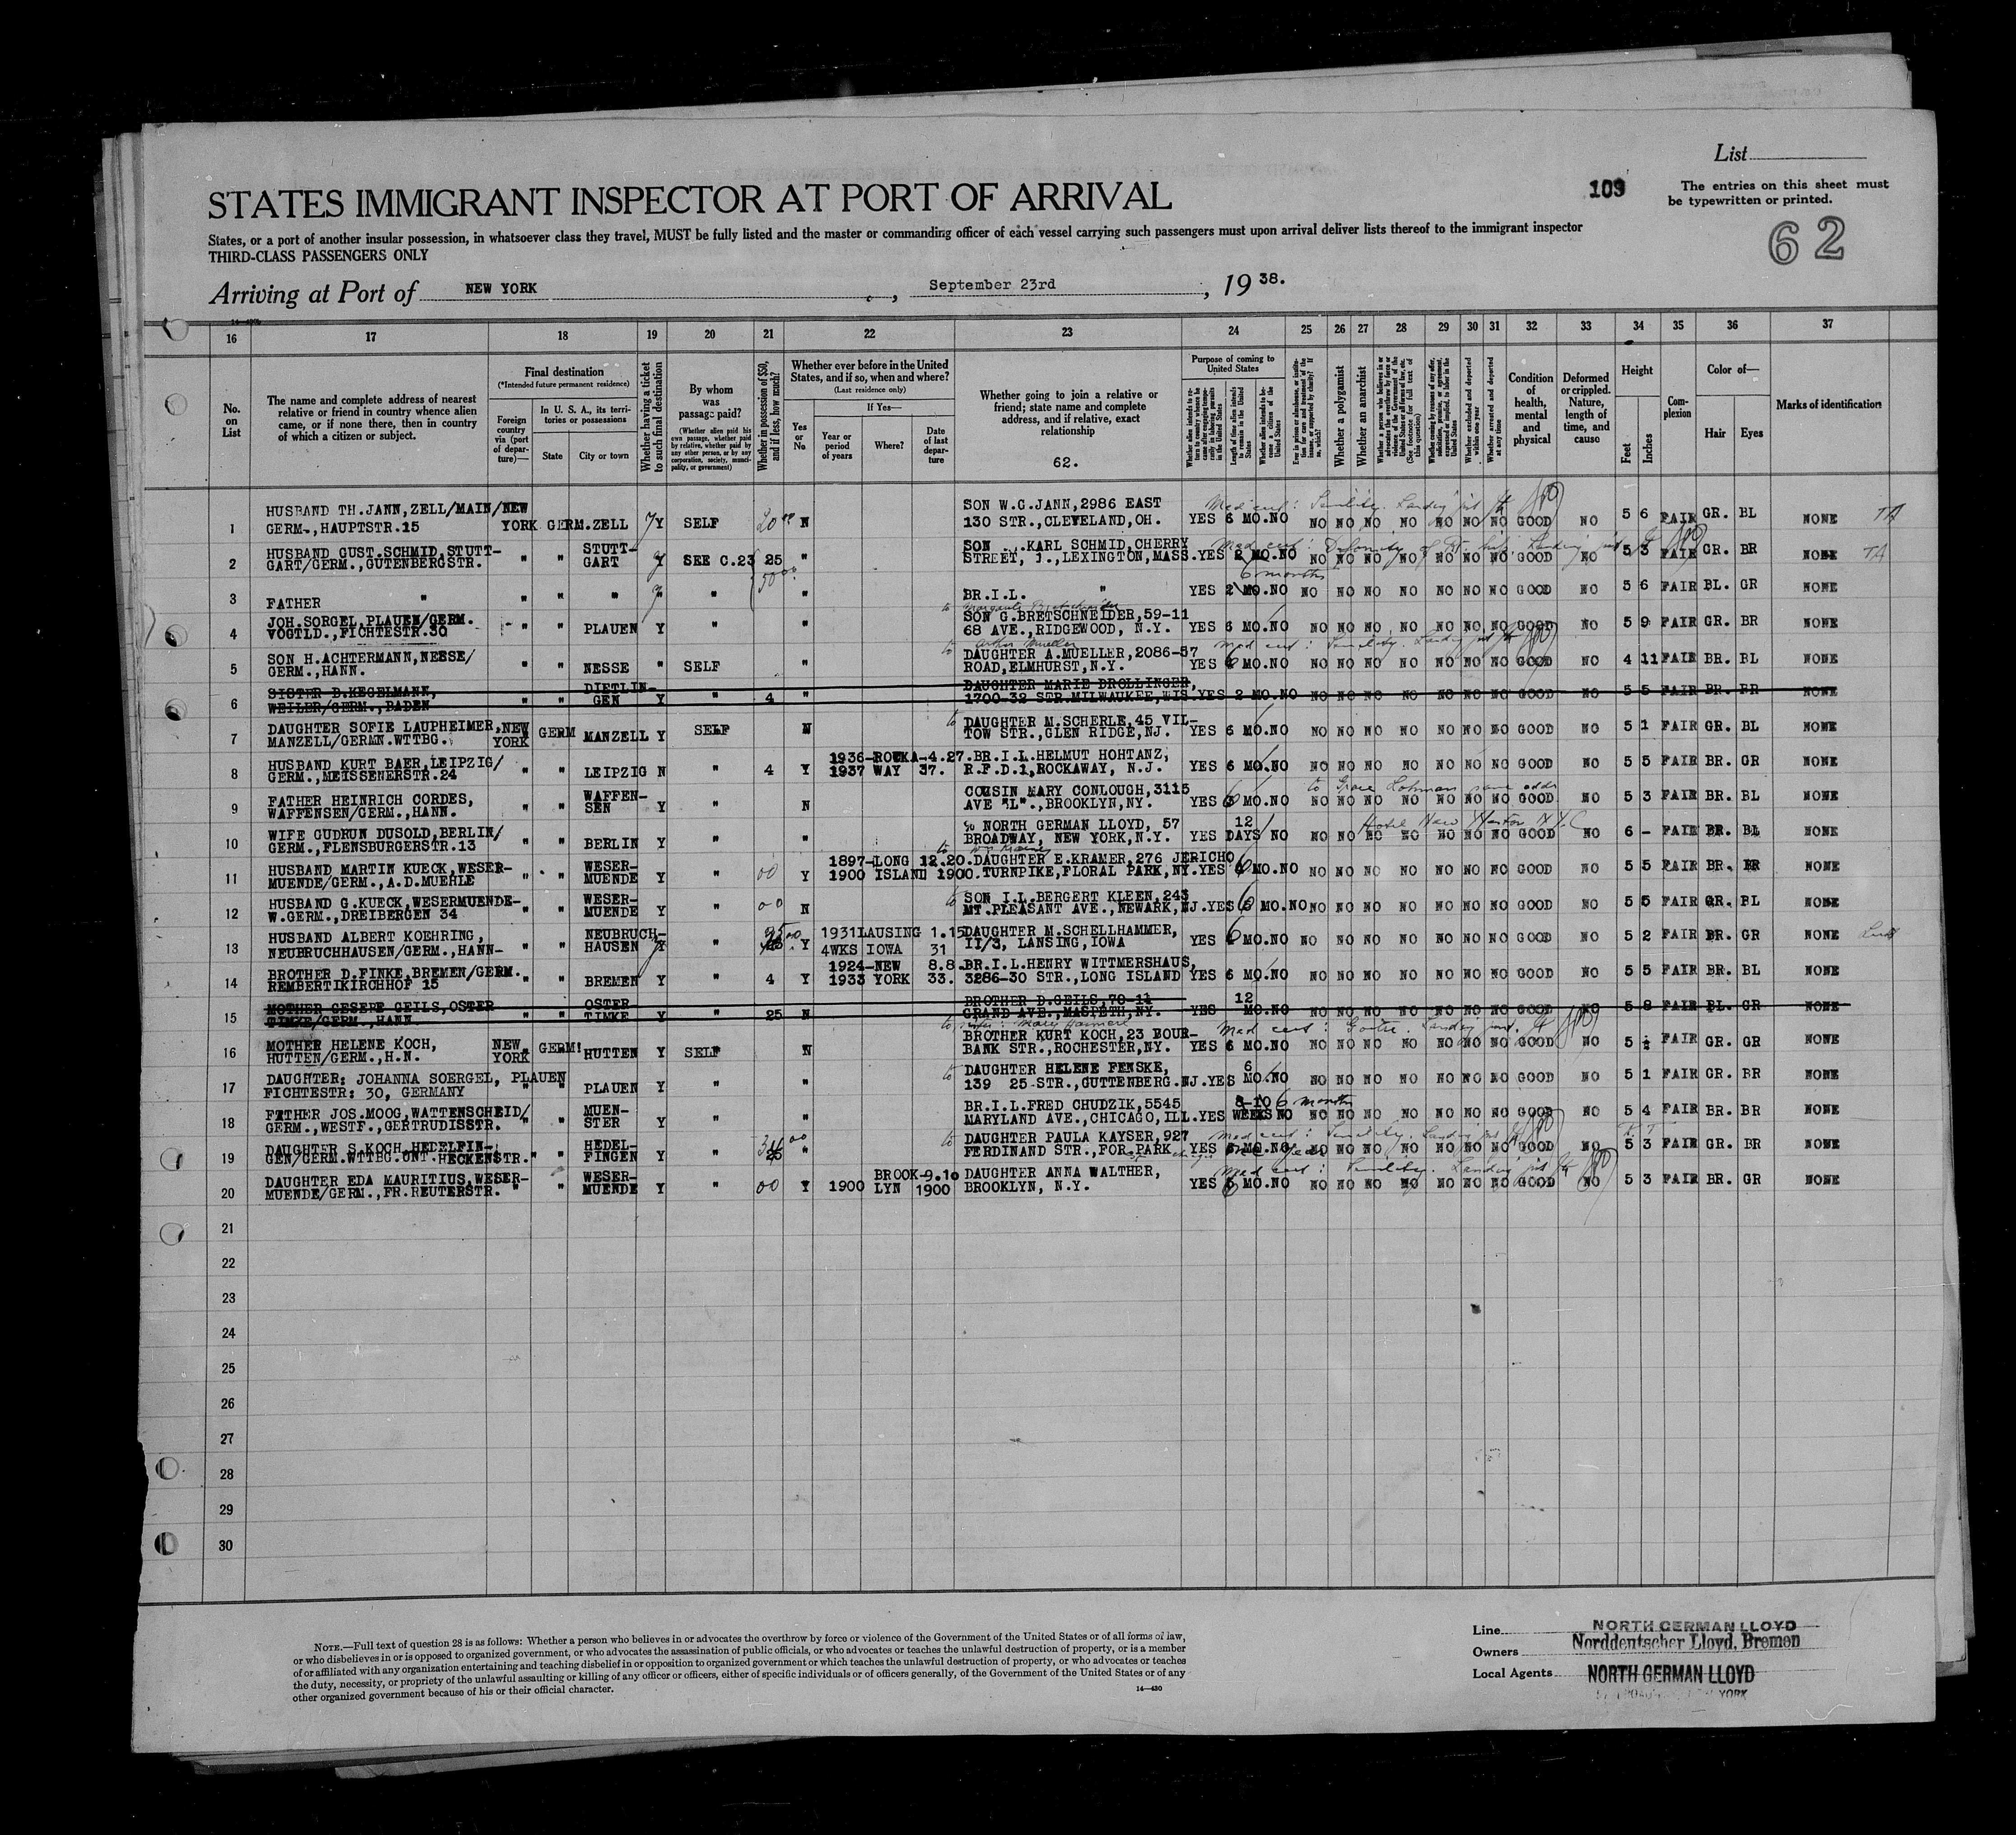 List
103
The entries on this sheet must
be typewritten or printed.
62
STATES IMMIGRANT INSPECTOR AT PORT OF ARRIVAL
States, or a port of another insular possession, in whatsoever class they travel, MUST be fully listed and the master or commanding officer of each vessel carrying such passengers must upon arrival deliver lists thereof to the immigrant inspector
THIRD-CLASS PASSENGERS ONLY
Arriving at Port of NEW YORK , September 23rd , 19 38.
16 17 18 19 20 21 22 23 24 25 26 27 28 29 30 31 32 33 34 35 36 37
No. on List
The name and complete address of nearest relative or friend in country whence alien came, or if none there, then in country of which a citizen or subject.
Final destination
(*Intended future permanent residence)
Foreign country via (port of departure)—
In U. S. A., its territories or possessions
State
City or town
Whether having a ticket to such final destination
By whom was passage paid?
(Whether alien paid his own passage, whether paid by relative, whether paid by any other person, or by any corporation, society, municipality, or government)
Whether in possession of $50, and if less, how much?
Whether ever before in the United States, and if so, when and where?
(Last residence only)
Yes or No
If Yes—
Year or period of years
Where?
Date of last departure
Whether going to join a relative or friend; state name and complete address, and if relative, exact relationship
62.
Purpose of coming to United States
Whether a polygamist
Whether an anarchist
Condition of health, mental and physical
Deformed or crippled. Nature, length of time, and cause
Height
Feet
Inches
Complexion
Color of—
Hair
Eyes
Marks of identification
1 HUSBAND TH.JANN,ZELL/MAIN/ NEW SON W.C.JANN,2986 EAST
GERM.,HAUPTSTR.15 YORK GERM. ZELL Y SELF 20 N 130 STR.,CLEVELAND,OH. YES 6 MO. NO NO NO NO NO NO NO NO GOOD NO 5 6 FAIR GR. BL NONE
2 HUSBAND GUST.SCHMID,STUTT- STUTT- SON KARL SCHMID,CHERRY
GART/GERM.,GUTENBERGSTR. " " GART Y SEE C.23 25 " STREET, 1.,LEXINGTON,MASS. YES 2 MO. NO NO NO NO NO NO NO NO GOOD NO 5 3 FAIR GR. BR NONE
6 months
3 FATHER " " " " " " BR.I.L. " YES 2 MO. NO NO NO NO NO NO NO NO GOOD NO 5 6 FAIR BL. GR NONE
4 JOH.SORGEL,PLAUEN/GERM. SON G.BRETSCHNEIDER,59-11
VOGTLD.,FICHTESTR.30 " " PLAUEN Y " 68 AVE.,RIDGEWOOD, N.Y. YES 6 MO. NO NO NO NO NO NO NO NO GOOD NO 5 9 FAIR GR. BR NONE
5 SON H.ACHTERMANN,NESSE/ DAUGHTER A.MUELLER,2086-57
GERM.,HANN. " " NESSE " SELF " ROAD,ELMHURST,N.Y. YES 6 MO. NO NO NO NO NO NO NO NO GOOD NO 4 11 FAIR BR. BL NONE
6 SISTER B.KEGELMANN, DIETLIN- DAUGHTER MARIE DROLLINGER,
WEILER/GERM.,BADEN " " GEN Y " 4 " 1700-32 STR.MILWAUKEE,WIS. YES 2 MO. NO NO NO NO NO NO NO NO GOOD NO 5 5 FAIR BR. BR NONE
7 DAUGHTER SOFIE LAUPHEIMER, NEW DAUGHTER M.SCHERLE,45 VIL-
MANZELL/GERMN.WTTBG. YORK GERM MANZELL Y SELF N TOW STR.,GLEN RIDGE,NJ. YES 6 MO. NO NO NO NO NO NO NO NO GOOD NO 5 1 FAIR GR. BL NONE
8 HUSBAND KURT BAER,LEIPZIG/ 1936- ROCKA- 4.27. BR.I.L.HELMUT HOHTANZ,
GERM.,MEISSENERSTR.24 " " LEIPZIG N " 4 Y 1937 WAY 37. R.F.D.1,ROCKAWAY, N.J. YES 6 MO. NO NO NO NO NO NO NO NO GOOD NO 5 5 FAIR BR. GR NONE
9 FATHER HEINRICH CORDES, WAFFEN- COUSIN MARY CONLOUGH,3115
WAFFENSEN/GERM.,HANN. " " SEN Y " N AVE "L".,BROOKLYN,NY. YES 6 MO. NO NO NO NO NO NO NO NO GOOD NO 5 3 FAIR BR. BL NONE
10 WIFE GUDRUN DUSOLD,BERLIN/ % NORTH GERMAN LLOYD, 57 12
GERM.,FLENSBURGERSTR.13 " " BERLIN Y " " BROADWAY, NEW YORK,N.Y. YES DAYS NO NO NO NO NO NO NO NO GOOD NO 6 - FAIR BR. BL NONE
11 HUSBAND MARTIN KUECK,WESER- WESER- 1897- LONG 12.20. DAUGHTER E.KRAMER,276 JERICHO
MUENDE/GERM.,A.D.MUEHLE " " MUENDE Y " 00 Y 1900 ISLAND 1900. TURNPIKE,FLORAL PARK,NY. YES 6 MO. NO NO NO NO NO NO NO NO GOOD NO 5 5 FAIR BR. BR NONE
12 HUSBAND G.KUECK,WESERMUENDE- WESER- SON I.L.BERGERT KLEEN,243
W.GERM.,DREIBERGEN 34 " " MUENDE Y " 00 N MT.PLEASANT AVE.,NEWARK,NJ. YES 6 MO. NO NO NO NO NO NO NO NO GOOD NO 5 5 FAIR GR. BL NONE
13 HUSBAND ALBERT KOEHRING, NEUBRUCH- 1931 LAUSING 1.15 DAUGHTER M.SCHELLHAMMER,
NEUBRUCHHAUSEN/GERM.,HANN- " " HAUSEN Y " Y 4WKS IOWA 31 II/3, LANSING,IOWA YES 6 MO. NO NO NO NO NO NO NO NO GOOD NO 5 2 FAIR BR. GR NONE
14 BROTHER D.FINKE,BREMEN/GERM. 1924- NEW 8.8. BR.I.L.HENRY WITTMERSHAUS,
REMBERTIKIRCHHOF 15 " " BREMEN Y " 4 Y 1933 YORK 33. 3286-30 STR.,LONG ISLAND YES 6 MO. NO NO NO NO NO NO NO NO GOOD NO 5 5 FAIR BR. BL NONE
15 MOTHER GESEPE GEILS,OSTER OSTER BROTHER D.GEILS,70-11 12
TIMKE/GERM.,HANN. " " TIMKE Y " 25 N GRAND AVE.,MASPETH,NY. YES MO. NO NO NO NO NO NO NO NO GOOD NO 5 8 FAIR BL. GR NONE
16 MOTHER HELENE KOCH, NEW BROTHER KURT KOCH,23 BOUR-
HUTTEN/GERM.,H.N. YORK GERM. HUTTEN Y SELF N BANK STR.,ROCHESTER,NY. YES 6 MO. NO NO NO NO NO NO NO NO GOOD NO 5 FAIR GR. GR NONE
17 DAUGHTER: JOHANNA SOERGEL, PLAUEN DAUGHTER HELENE FENSKE, 6
FICHTESTR: 30, GERMANY " " PLAUEN Y " " 139 25-STR.,GUTTENBERG.NJ. YES MO. NO NO NO NO NO NO NO NO GOOD NO 5 1 FAIR GR. BR NONE
18 FATHER JOS.MOOG,WATTENSCHEID/ MUEN- BR.I.L.FRED CHUDZIK,5545 8-10 6 months
GERM.,WESTF.,GERTRUDISSTR. " " STER Y " " MARYLAND AVE.,CHICAGO,ILL. YES WEEKS NO NO NO NO NO NO NO NO GOOD NO 5 4 FAIR BR. BR NONE
19 DAUGHTER S.KOCH,HEDELFIN- HEDEL- DAUGHTER PAULA KAYSER,927
GEN/GERM.WTTBG.UNT.HECKENSTR. " " FINGEN Y " " FERDINAND STR.,FOR.PARK YES 6 MO. NO NO NO NO NO NO NO NO GOOD NO 5 3 FAIR GR. BR NONE
20 DAUGHTER EDA MAURITIUS,WESER- WESER- BROOK- 9.10 DAUGHTER ANNA WALTHER,
MUENDE/GERM.,FR.REUTERSTR. " " MUENDE Y " 00 Y 1900 LYN 1900 BROOKLYN, N.Y. YES 6 MO. NO NO NO NO NO NO NO NO GOOD NO 5 3 FAIR BR. GR NONE
21
22
23
24
25
26
27
28
29
30
NOTE.—Full text of question 28 is as follows: Whether a person who believes in or advocates the overthrow by force or violence of the Government of the United States or of all forms of law,
or who disbelieves in or is opposed to organized government, or who advocates the assassination of public officials, or who advocates or teaches the unlawful destruction of property, or is a member
of or affiliated with any organization entertaining and teaching disbelief in or opposition to organized government or which teaches the unlawful destruction of property, or who advocates or teaches
the duty, necessity, or propriety of the unlawful assaulting or killing of any officer or officers, either of specific individuals or of officers generally, of the Government of the United States or of any
other organized government because of his or their official character.
14—430
Line NORTH GERMAN LLOYD
Owners Norddeutscher Lloyd, Bremen
Local Agents NORTH GERMAN LLOYD